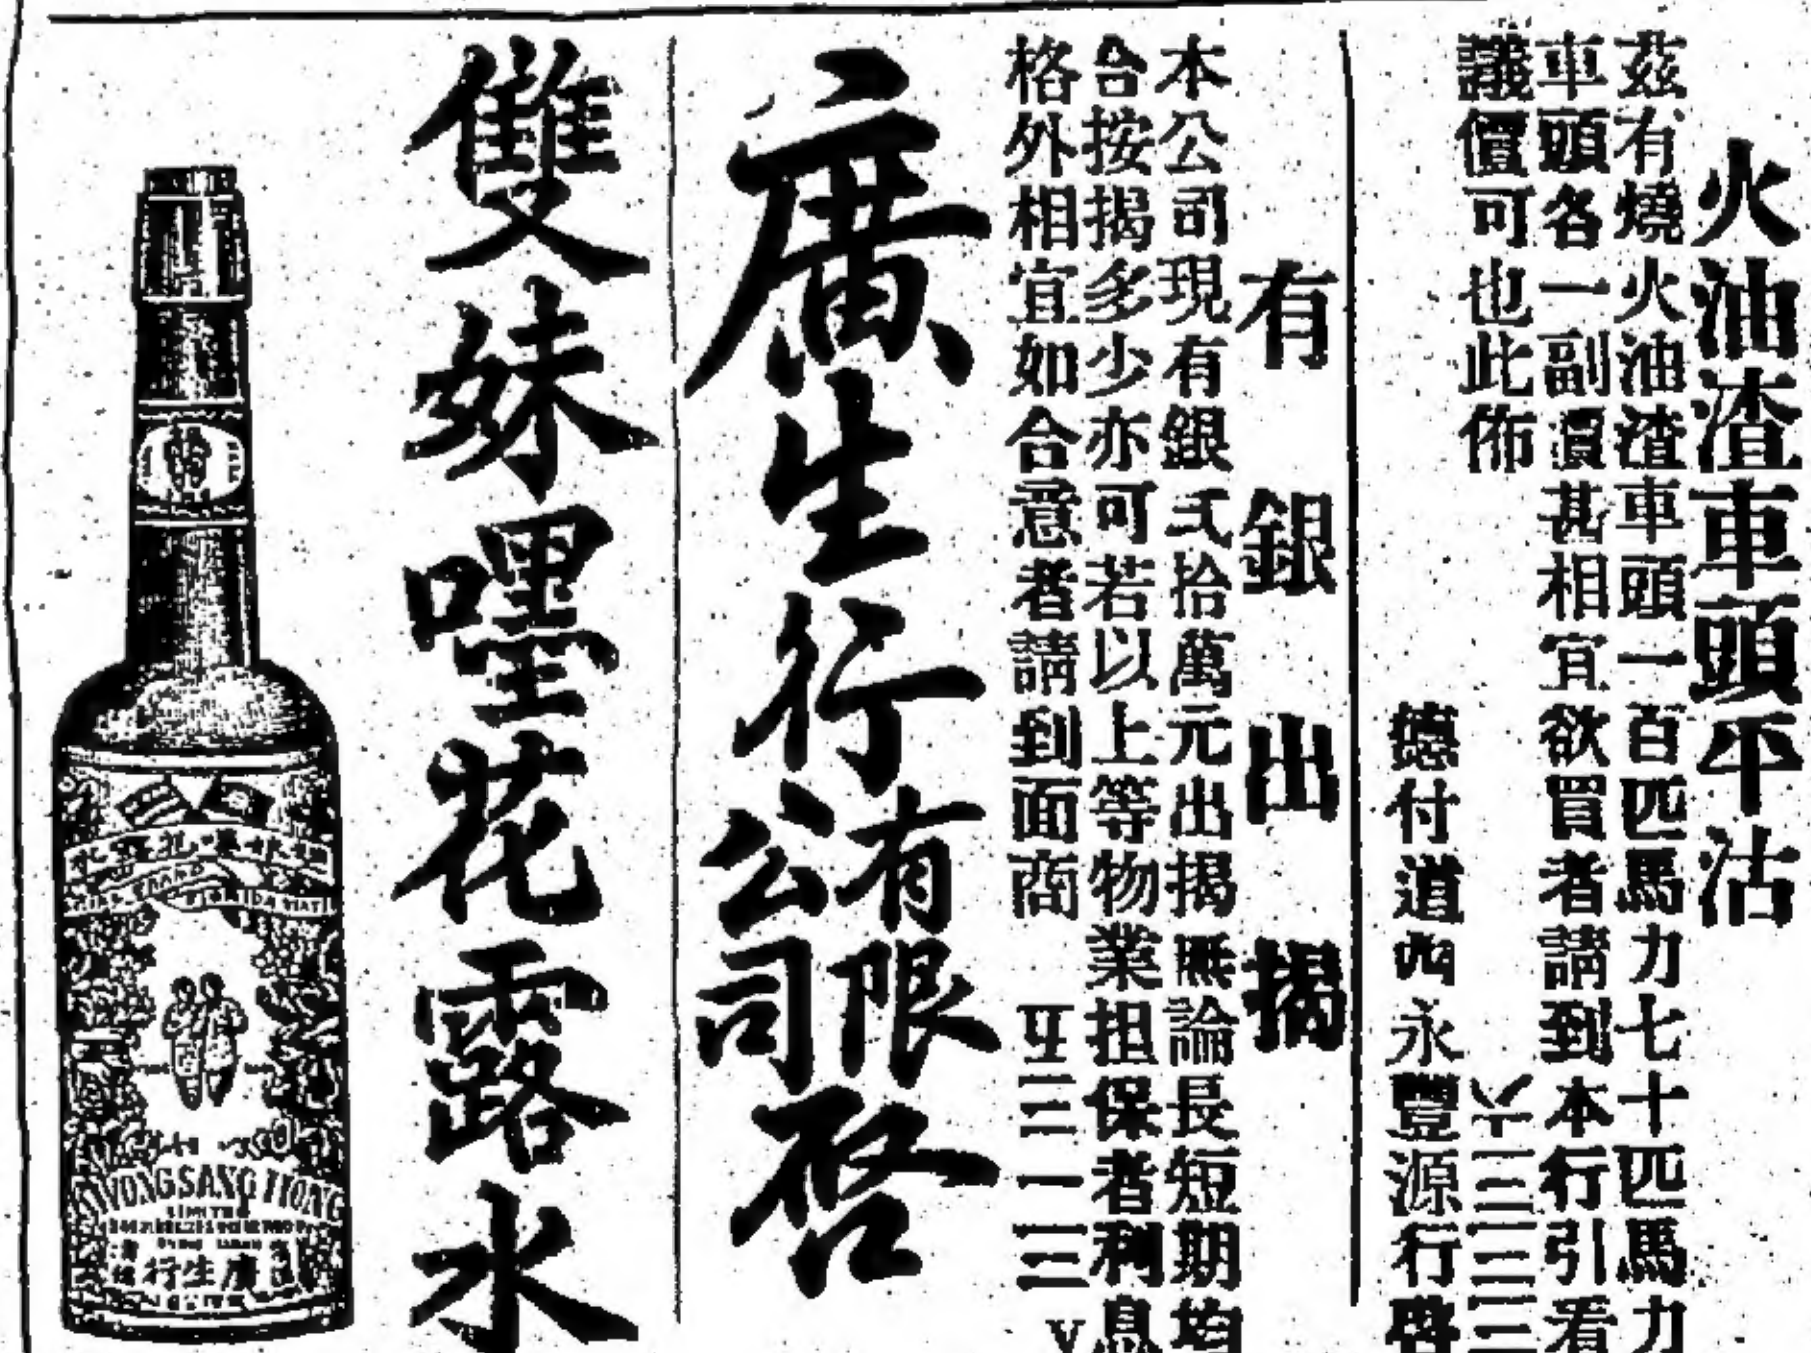 火油渣車頭平沽
茲有燒火油渣車頭一百匹馬力七十匹馬力
車頭各一副價甚相宜欲買者請到本行引看
議價可也此佈
德付道西永豐源行啓
有銀出揭
本公司現有銀弍拾萬元出揭無論長短期均
合按揭多少亦可若以上等物業担保者利息
格外相宜如合意者請到面商
廣生行有限公司啓
雙妹嚜花露水
KWONG SANG HONG
LIMITED
廣生行